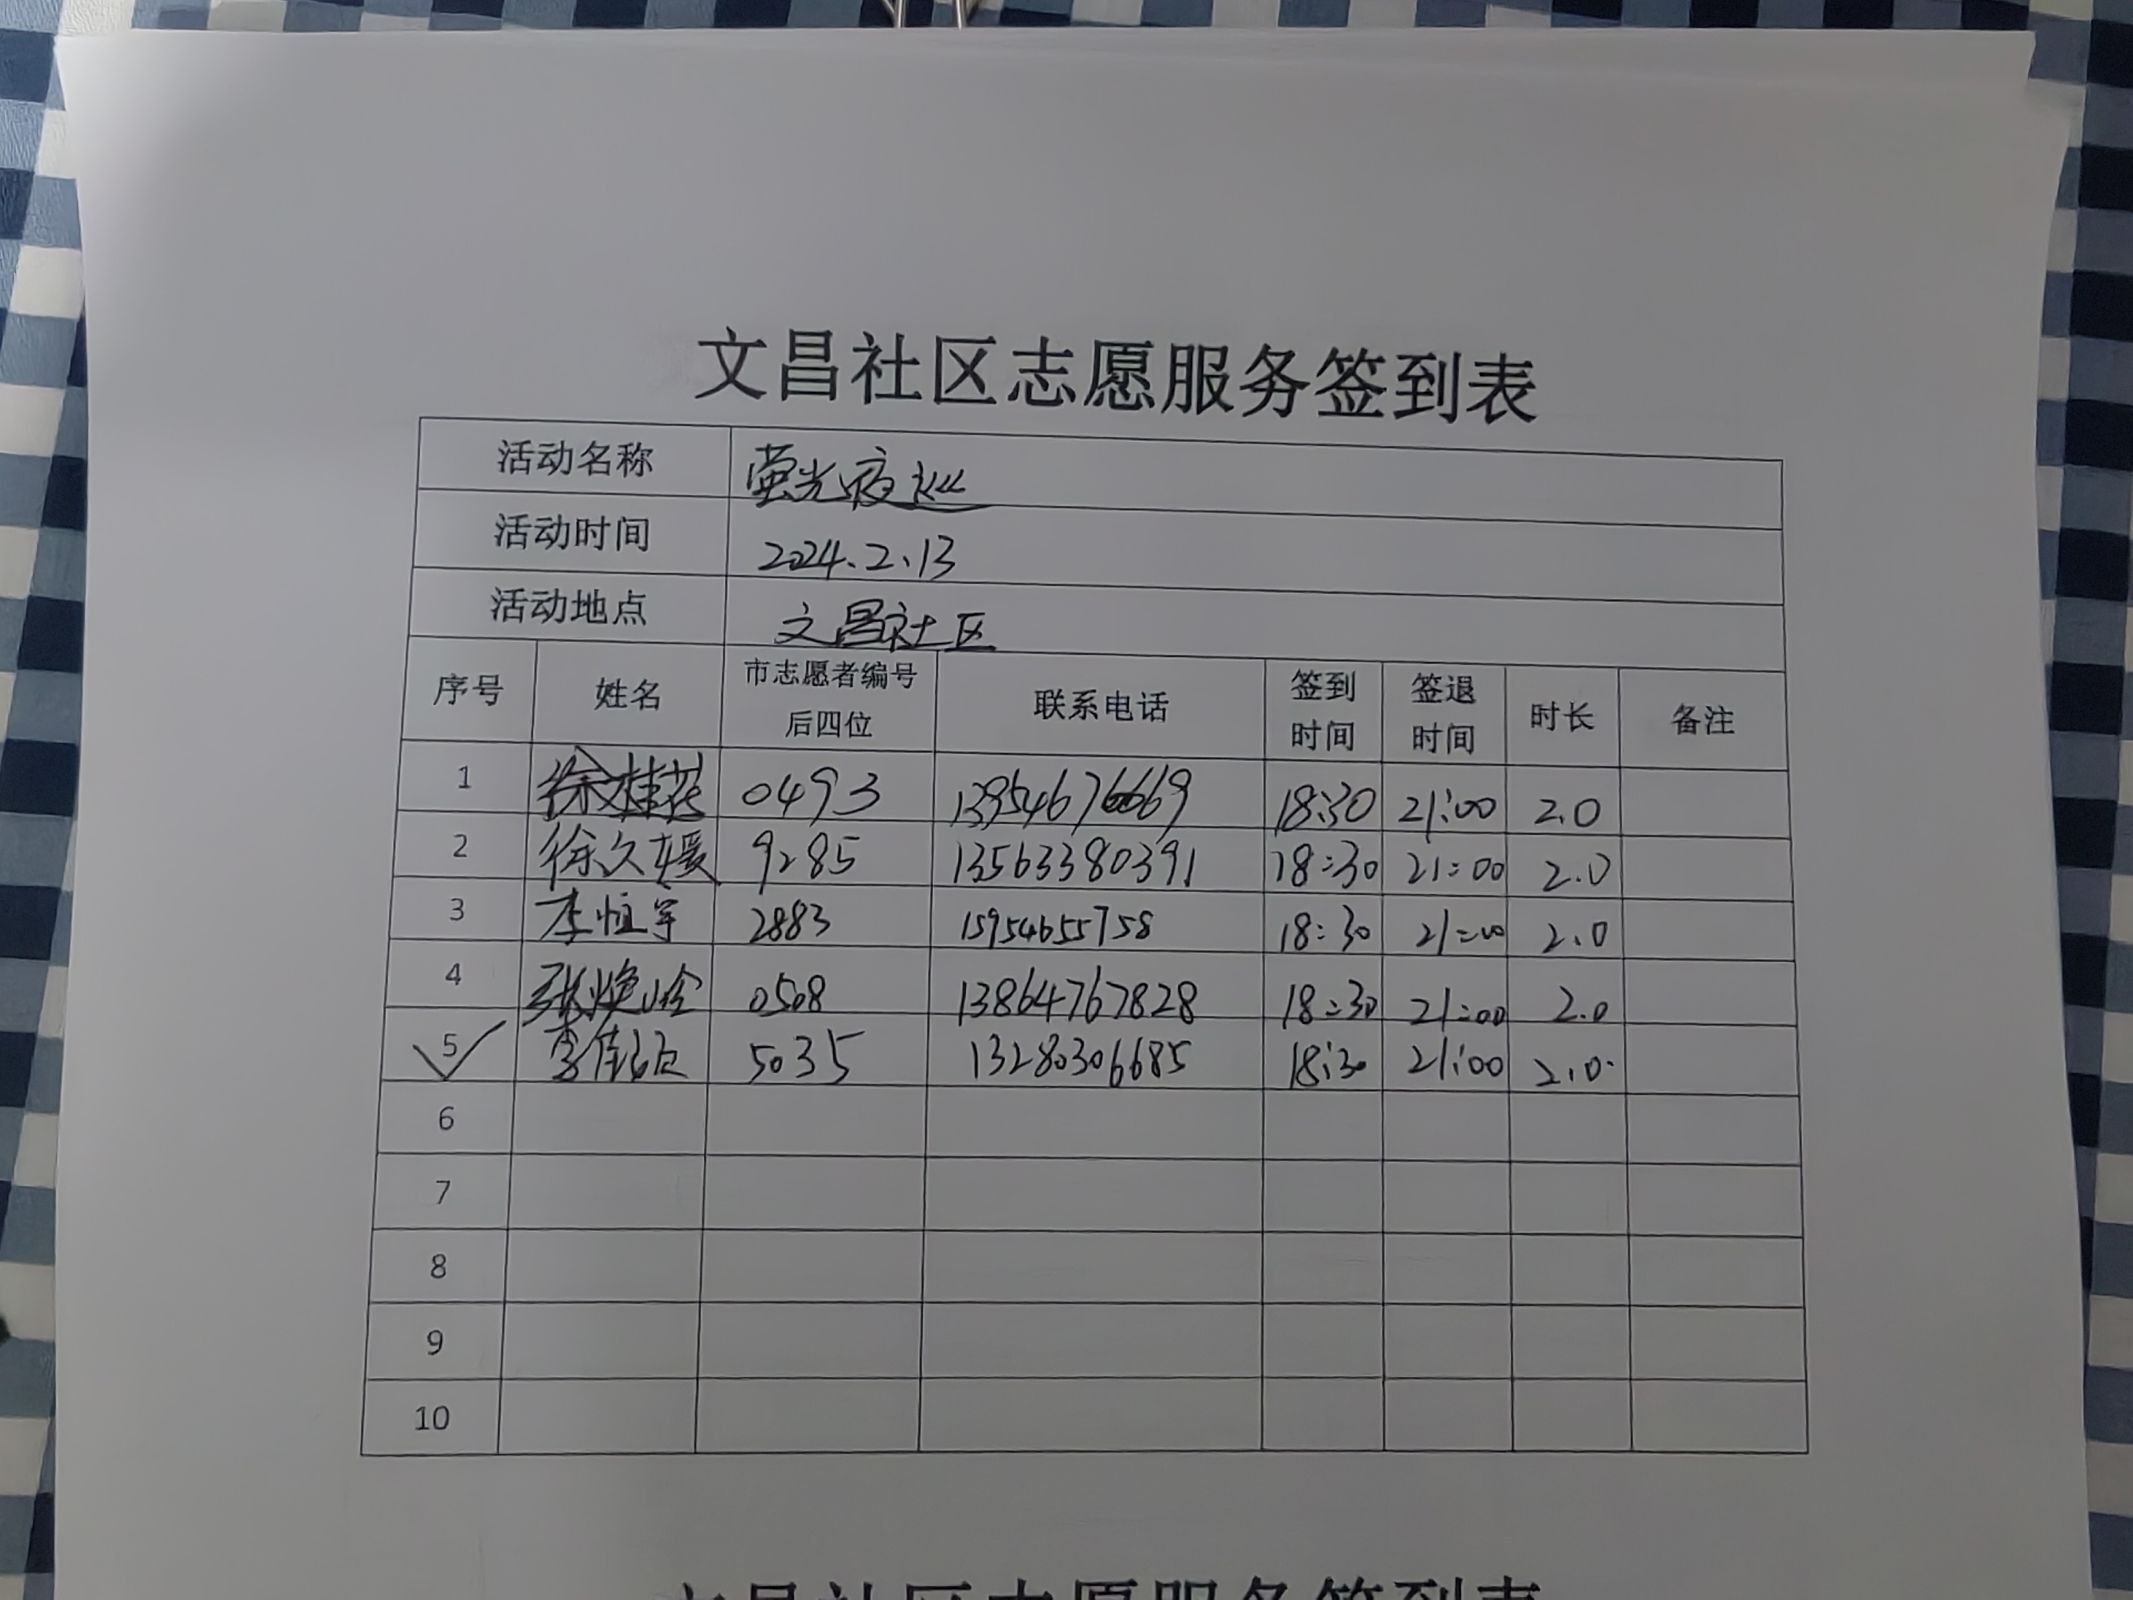 文昌社区志愿服务签到表
活动名称 萤光夜巡
活动时间 2024.2.13
活动地点 文昌社区
序号 姓名 市志愿者编号后四位 联系电话 签到时间 签退时间 时长 备注
1 徐桂花 0493 18:30 21:00 2.0
2 徐久媛 9285 13563380391 18:30 21:00 2.0
3 李恒军 2883 15954655758 18:30 21:00 2.0
4 张焕玲 0508 13864767828 18:30 21:00 2.0
5 李 5035 13280306685 18:30 21:00 2.0
6
7
8
9
10
文昌社区志愿服务签到表